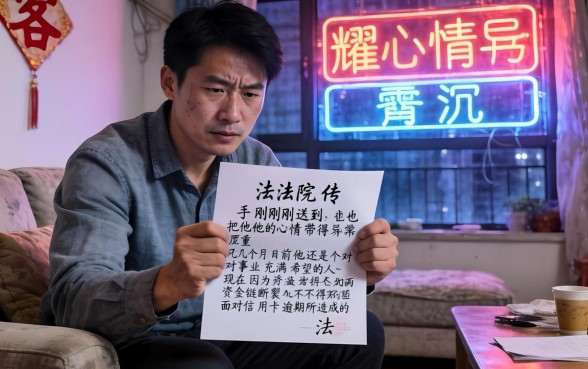 客
耀心情号
霄沉
法法院传
手刚刚刚送到，也也
把他他的心情带得异常
严重
几个月目前他还是个对
对事业充满希望的人~
现在因为
资金链断裂 不不得
面对信用卡逾期所造成的
法